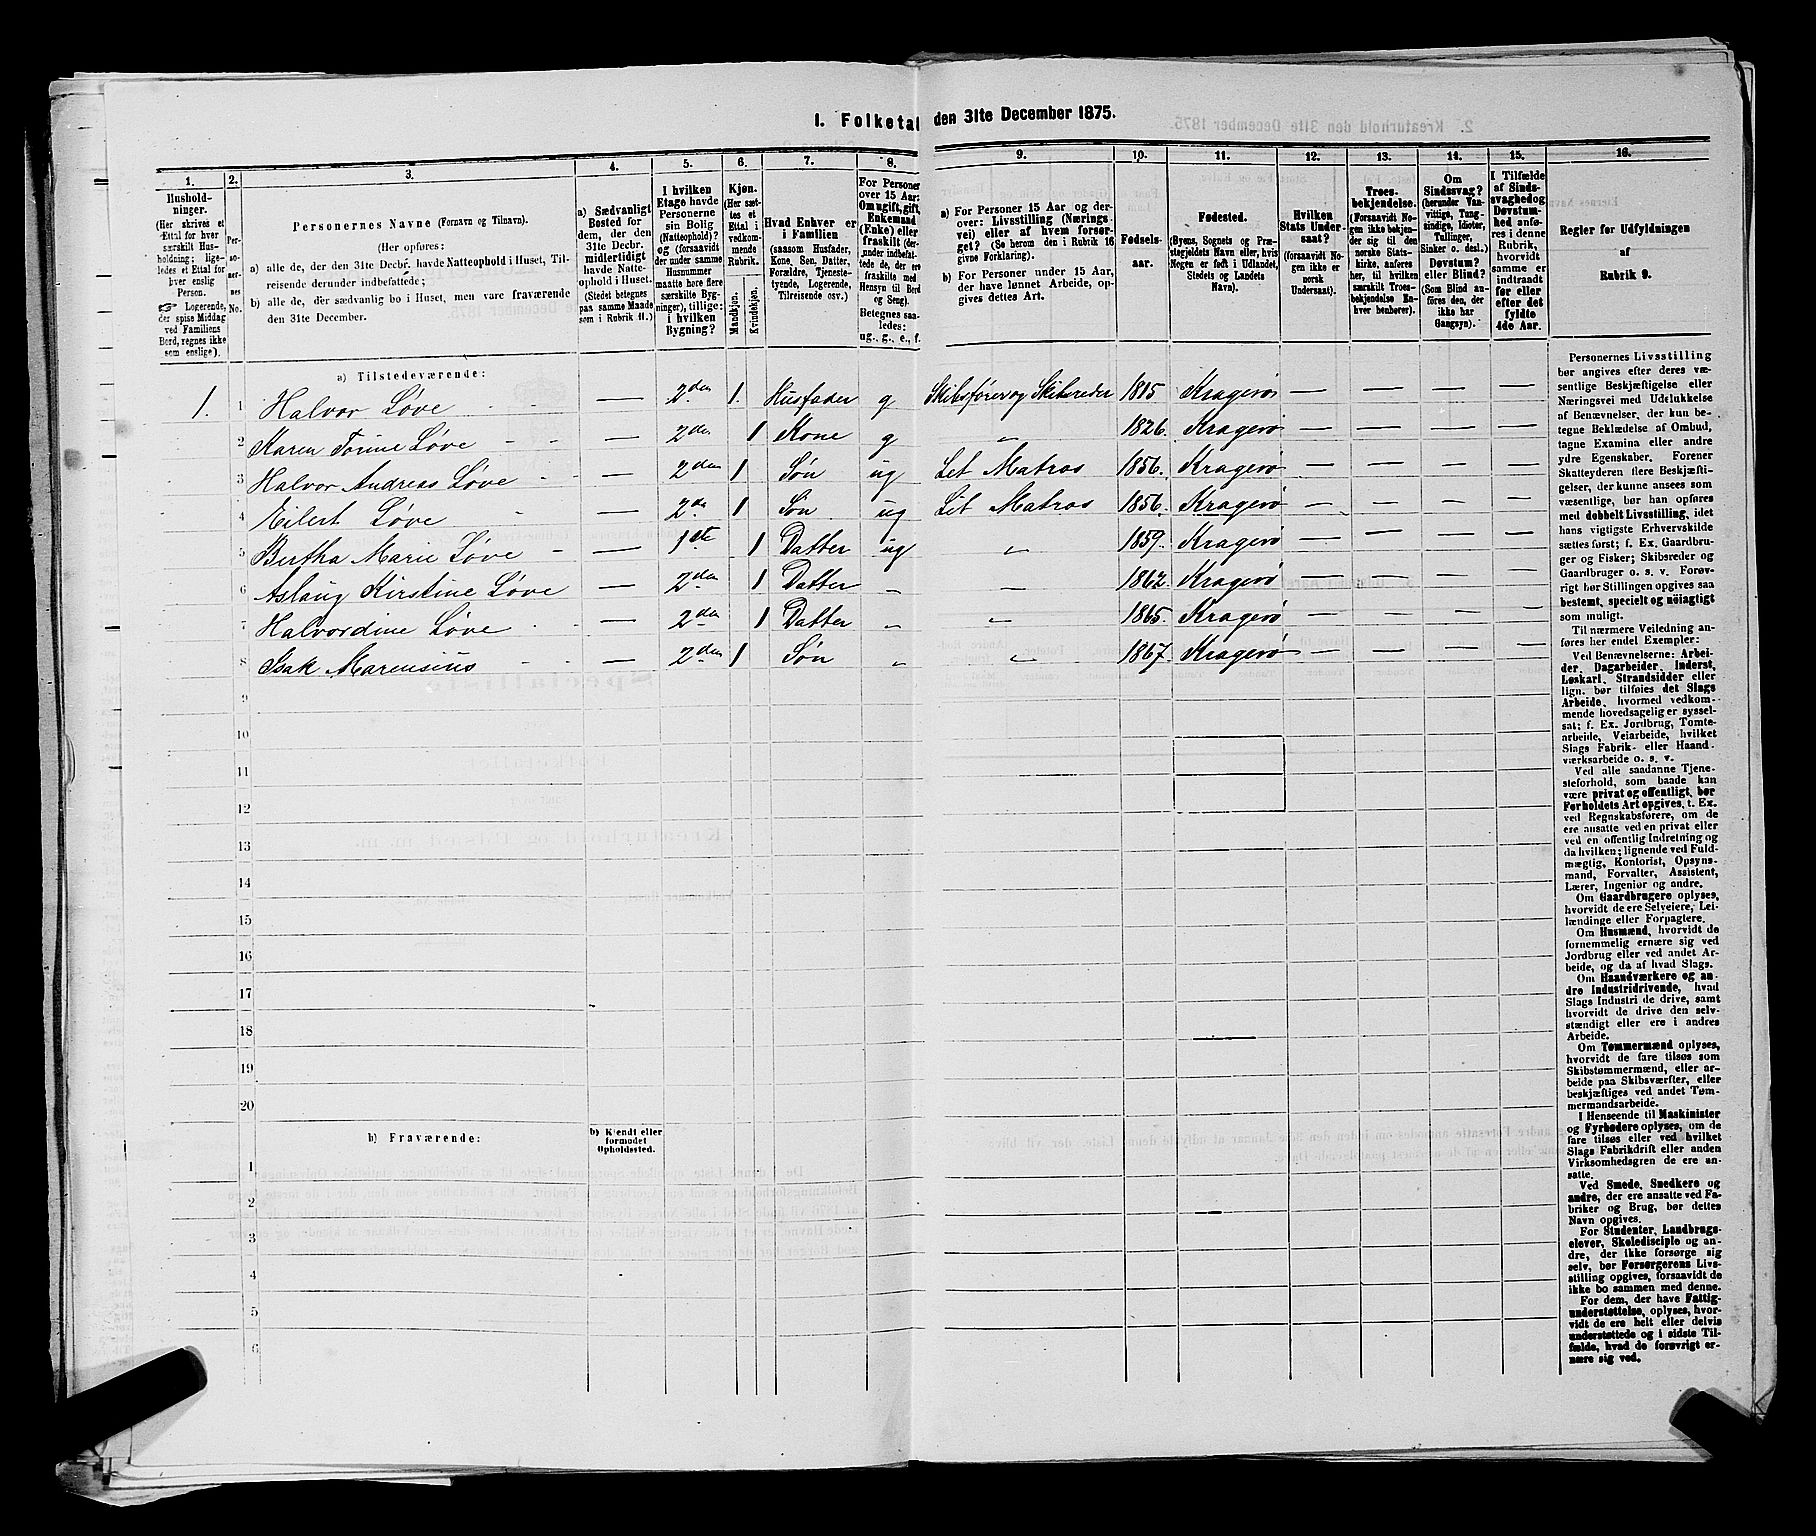 1. Folketal den 31te December 1875.
1. 2. 3. 4. 5. 6. 7. 8. 9. 10. 11. 12. 13. 14. 15. 16.
Hushold-
ninger.
(Her skrives et
Ettal for hver
særskilt Hus-
holdning; lige-
ledes et Ettal for
hver enslig
Person.
Logerende,
der spise Middag
ved Familiens
Bord, regnes ikke
som enslige).
Per-
so-
ner-
nes
No.
Personernes Navne (Fornavn og Tilnavn).
(Her opføres:
a) alle de, der den 31te Decbr. havde Natteophold i Huset, Til-
reisende derunder indbefattede;
b) alle de, der sædvanlig bo i Huset, men vare fraværende
den 31te December.
a) Sædvanligt
Bosted for
dem, der den
31te Decbr.
midlertidigt
havde Natte-
ophold i Huset.
(Stedet betegnes
paa samme Maade
som i Rubrik 11.)
I hvilken
Etage havde
Personerne
sin Bolig
(Natteophold)?
og (forsaavidt
der under samme
Husnummer
maatte høre flere
særskilte Byg-
ninger), tillige:
i hvilken
Bygning?
Kjøn.
(Her sæt-
tes et
Ettal i
vedkom-
mende
Rubrik.
Mandkjøn.
Kvindekjøn.
Hvad Enhver er
i Familien
(saasom Husfader,
Kone, Søn, Datter,
Forældre, Tjeneste-
tyende, Logerende,
Tilreisende osv.)
For Personer
over 15 Aar:
Om ugift, gift,
Enkemand
(Enke) eller
fraskilt (der-
under indbefat-
tede de, der ere
fraskilte med
Hensyn til Bord
og Seng).
Betegnes saa-
ledes:
ug., g., e., f.
a) For Personer 15 Aar og der-
over: Livsstilling (Nærings-
vei) eller af hvem forsør-
get? (Se herom den i Rubrik 16
givne Forklaring).
b) For Personer under 15 Aar,
der have lønnet Arbeide, op-
gives dettes Art.
Fødsels-
aar.
Fødested.
(Byens, Sognets og Præ-
stegjeldets Navn eller, hvis
Nogen er født i Udlandet,
Stedets og Landets
Navn).
Hvilken
Stats Under-
saat?
(forsaavidt No-
gen ikke er
norsk
Undersaat).
Troes-
bekjendelse.
(Forsaavidt No-
gen ikke bekjen-
der sig til den
norske Stats-
kirke, anføres
her, til hvilken
særskilt Troes-
bekjendelse En-
hver henhører).
Om
Sindssvag?
(herunder Van-
vittige, Tung-
sindige, Idioter,
Tullinger,
Sinker o. desl.)
Døvstum?
eller Blind?
(Som Blind an-
føres den, der
ikke har
Gangsyn).
I Tilfælde
af Sinds-
svaghed og
Døvstum-
hed anfø-
res i denne
Rubrik,
hvorvidt
samme er
indtraadt
før eller
efter det
fyldte
4de Aar.
Regler for Udfyldningen
af
Rubrik 9.
a) Tilstedeværende:
1. 1 Halvor Løve — 2den 1. Husfader g Skibsfører og Skibsreder 1815 Kragerø — — — —
2 Karen Torine Løve — 2den 1 Kone g „ 1826. Kragerø — — — —
3 Halvor Andreas Løve — 2den 1 Søn ug Let Matros 1856. Kragerø — — — —
4 Eilert Løve — 2den 1 Søn ug Let Matros 1856. Kragerø — — — —
5 Birtha Marie Løve — 1ste 1 Datter ug „ 1859. Kragerø — — — —
6 Aslaug Kirstine Løve — 2den 1 Datter „ „ 1862. Kragerø — — — —
7 Halvordine Løve — 2den 1 Datter „ „ 1865. Kragerø — — — —
8 Isak Marensius — 2den 1 Søn „ „ 1867. Kragerø — — — —
9
10
11
12
13
14
15
16
17
18
19
20
b) Fraværende:
b) Kjendt eller
formodet
Opholdssted.
1
2
3
4
5
6
Personernes Livsstilling
bør angives efter deres væ-
sentlige Beskjæftigelse eller
Næringsvei med Udelukkelse
af Benævnelser, der kun be-
tegne Beklædelse af Ombud,
tagne Examina eller andre
ydre Egenskaber. Forener
Skatteyderen flere Beskjæfti-
gelser, der kunne ansees som
væsentlige, bør han opføres
med dobbelt Livsstilling, idet
hans vigtigste Erhvervskilde
sættes først; f. Ex. Gaardbru-
ger og Fisker; Skibsreder og
Gaardbruger o. s. v. Forøv-
rigt bør Stillingen opgives saa
bestemt, specielt og nøiagtigt
som muligt.
Til nærmere Veiledning an-
føres her endel Exempler:
Ved Benævnelserne: Arbei-
der, Dagarbeider, Inderst,
Løskarl, Strandsidder eller
lign. bør tilføies det Slags
Arbeide, hvormed vedkom-
mende hovedsagelig er syssel-
sat; f. Ex. Jordbrug, Tomte-
arbeide, Veiarbeide, hvilket
Slags Fabrik- eller Haand-
værksarbeide o. s. v.
Ved alle saadanne Tjene-
steforhold, som baade kan
være privat og offentligt, bør
Forholdets Art opgives, t. Ex.
ved Regnskabsførere, om de
ere ansatte ved en privat eller
ved en offentlig Indretning og
da hvilken; lignende ved Fuld-
mægtig, Kontorist, Opsyns-
mand, Forvalter, Assistent,
Lærer, Ingeniør og andre.
Om Gaardbrugere oplyses,
hvorvidt de ere Selveiere, Lei-
lændinge eller Forpagtere.
Om Husmænd, hvorvidt de
fornemmelig ernære sig ved
Jordbrug eller ved andet Ar-
beide, og da af hvad Slags.
Om Haandværkere og an-
dre Industridrivende, hvad
Slags Industri de drive, samt
hvorvidt de drive den selv-
stændigt eller ere i andres
Arbeide.
Om Tømmermænd oplyses,
hvorvidt de fare tilsøs som
Skibstømmermænd, eller ar-
beide paa Skibsværfter, eller
beskjæftiges ved andet Tøm-
mermandsarbeide.
I Henseende til Maskinister
og Fyrbødere oplyses, om de
fare tilsøs eller ved hvilket
Slags Fabrikdrift eller anden
Virksomhedsgren de ere an-
satte.
Ved Smede, Snedkere og
andre, der ere ansatte ved Fa-
briker og Brug, bør dettes
Navn opgives.
For Studenter, Landbrugs-
elever, Skoledisciple og an-
dre, der ikke forsørge sig
selv, bør Forsørgerens Livs-
stilling opgives, forsaavidt de
ikke bo sammen med denne.
For dem, der have Fattig-
understøttelse, oplyses, hvor-
vidt de ere helt eller delvis
understøttede og i sidste Til-
fælde, hvad de forøvrigt er-
nære sig ved.